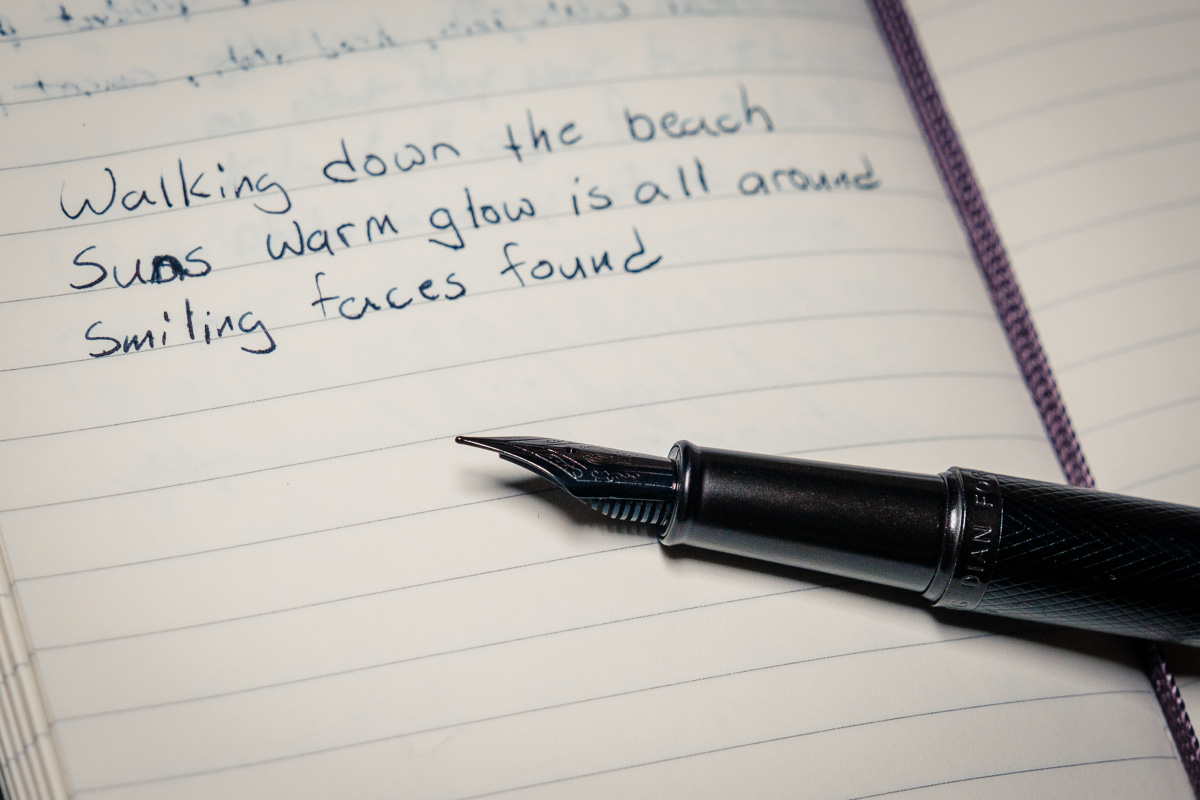 Walking down the beach
Suns warm glow is all around
Smiling faces found
DIAN FO